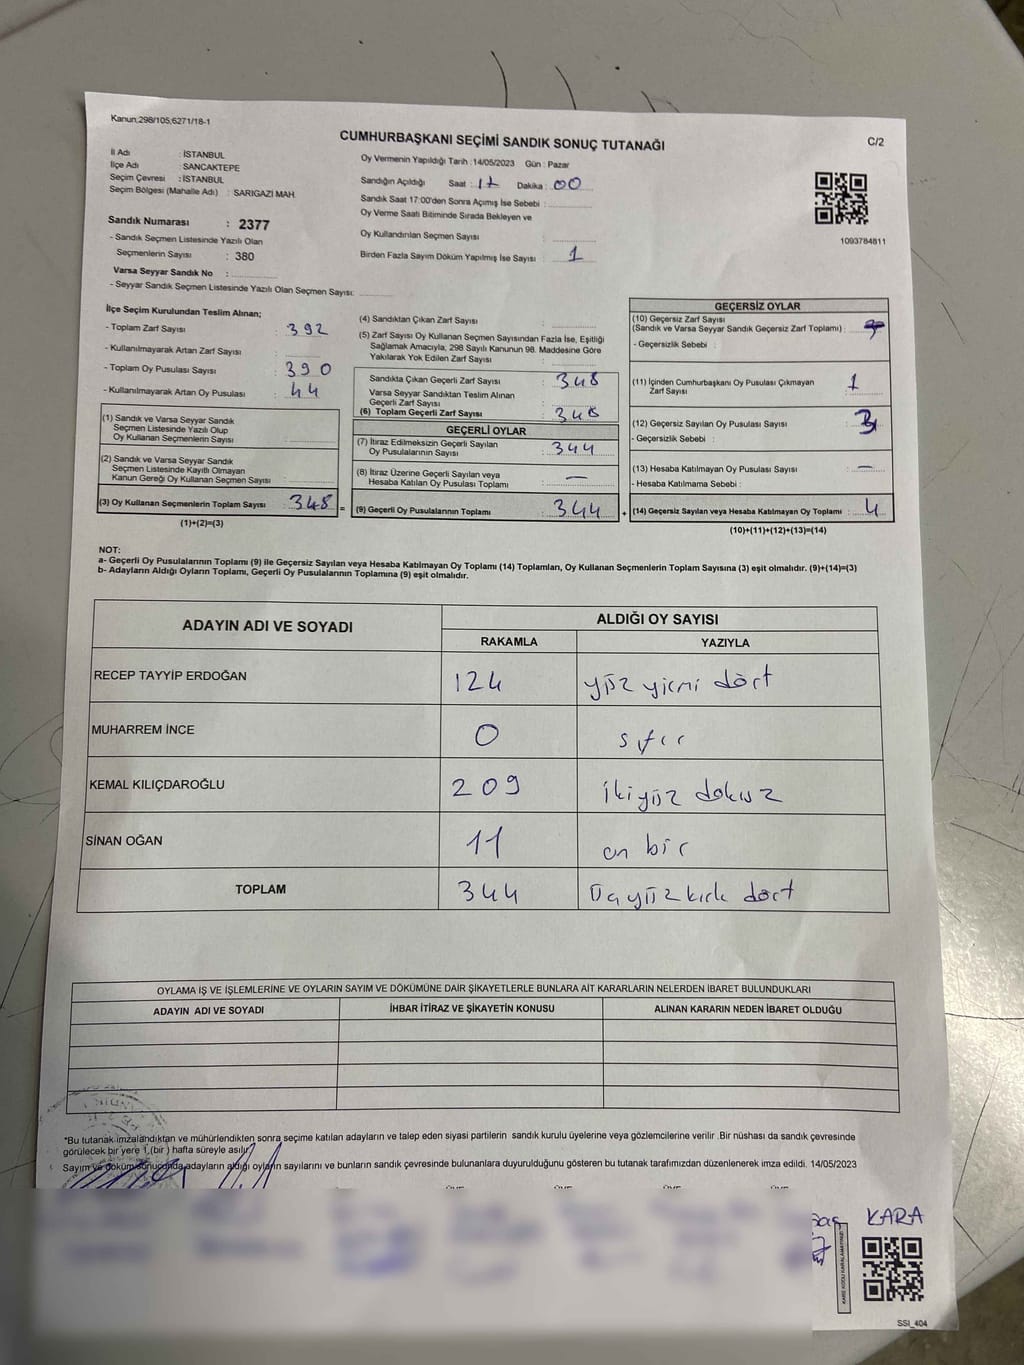 Kanun;298/105;6271/18-1
CUMHURBAŞKANI SEÇİMİ SANDIK SONUÇ TUTANAĞI
C/2
İl Adı : İSTANBUL
İlçe Adı : SANCAKTEPE
Seçim Çevresi : İSTANBUL
Seçim Bölgesi (Mahalle Adı) : SARIGAZİ MAH.
Sandık Numarası : 2377
- Sandık Seçmen Listesinde Yazılı Olan
Seçmenlerin Sayısı : 380
Varsa Seyyar Sandık No :
- Seyyar Sandık Seçmen Listesinde Yazılı Olan Seçmen Sayısı:
Oy Vermenin Yapıldığı Tarih :14/05/2023 Gün : Pazar
Sandığın Açıldığı Saat : 17 Dakika : 00
Sandık Saat 17:00'den Sonra Açımış İse Sebebi :
Oy Verme Saati Bitiminde Sırada Bekleyen ve
Oy Kullandırılan Seçmen Sayısı :
Birden Fazla Sayım Döküm Yapılmış İse Sayısı : 1
1093784811
İlçe Seçim Kurulundan Teslim Alınan;
- Toplam Zarf Sayısı : 392
- Kullanılmayarak Artan Zarf Sayısı :
- Toplam Oy Pusulası Sayısı : 390
- Kullanılmayarak Artan Oy Pusulası : 44
(1) Sandık ve Varsa Seyyar Sandık
Seçmen Listesinde Yazılı Olup
Oy Kullanan Seçmenlerin Sayısı :
(2) Sandık ve Varsa Seyyar Sandık
Seçmen Listesinde Kayıtlı Olmayan
Kanun Gereği Oy Kullanan Seçmen Sayısı :
(3) Oy Kullanan Seçmenlerin Toplam Sayısı : 348 =
(1)+(2)=(3)
(4) Sandıktan Çıkan Zarf Sayısı :
(5) Zarf Sayısı Oy Kullanan Seçmen Sayısından Fazla İse, Eşitliği
Sağlamak Amacıyla, 298 Sayılı Kanunun 98. Maddesine Göre
Yakılarak Yok Edilen Zarf Sayısı :
Sandıkta Çıkan Geçerli Zarf Sayısı : 348
Varsa Seyyar Sandıktan Teslim Alınan
Geçerli Zarf Sayısı :
(6) Toplam Geçerli Zarf Sayısı : 348
GEÇERLİ OYLAR
(7) İtiraz Edilmeksizin Geçerli Sayılan
Oy Pusulalarının Sayısı : 344
(8) İtiraz Üzerine Geçerli Sayılan veya
Hesaba Katılan Oy Pusulası Toplamı : —
(9) Geçerli Oy Pusulalarının Toplamı : 344 +
GEÇERSİZ OYLAR
(10) Geçersiz Zarf Sayısı
(Sandık ve Varsa Seyyar Sandık Geçersiz Zarf Toplamı) :
- Geçersizlik Sebebi :
(11) İçinden Cumhurbaşkanı Oy Pusulası Çıkmayan
Zarf Sayısı : 1
(12) Geçersiz Sayılan Oy Pusulası Sayısı : 3
- Geçersizlik Sebebi :
(13) Hesaba Katılmayan Oy Pusulası Sayısı : —
- Hesaba Katılmama Sebebi :
(14) Geçersiz Sayılan veya Hesaba Katılmayan Oy Toplamı : 4
(10)+(11)+(12)+(13)=(14)
NOT:
a- Geçerli Oy Pusulalarının Toplamı (9) ile Geçersiz Sayılan veya Hesaba Katılmayan Oy Toplamı (14) Toplamları, Oy Kullanan Seçmenlerin Toplam Sayısına (3) eşit olmalıdır. (9)+(14)=(3)
b- Adayların Aldığı Oyların Toplamı, Geçerli Oy Pusulalarının Toplamına (9) eşit olmalıdır.
ADAYIN ADI VE SOYADI
ALDIĞI OY SAYISI
RAKAMLA YAZIYLA
RECEP TAYYİP ERDOĞAN 124 yüz yirmi dört
MUHARREM İNCE 0 sıfır
KEMAL KILIÇDAROĞLU 209 ikiyüz dokuz
SİNAN OĞAN 11 on bir
TOPLAM 344 Üçyüz kırk dört
OYLAMA İŞ VE İŞLEMLERİNE VE OYLARIN SAYIM VE DÖKÜMÜNE DAİR ŞİKAYETLERLE BUNLARA AİT KARARLARIN NELERDEN İBARET BULUNDUKLARI
ADAYIN ADI VE SOYADI İHBAR İTİRAZ VE ŞİKAYETİN KONUSU ALINAN KARARIN NEDEN İBARET OLDUĞU
*Bu tutanak imzalandıktan ve mühürlendikten sonra seçime katılan adayların ve talep eden siyasi partilerin sandık kurulu üyelerine veya gözlemcilerine verilir .Bir nüshası da sandık çevresinde
görülecek bir yere 1 (bir ) hafta süreyle asılır.
Sayım ve döküm sonucunda adayların aldığı oyların sayılarını ve bunların sandık çevresinde bulunanlara duyurulduğunu gösteren bu tutanak tarafımızdan düzenlenerek imza edildi. 14/05/2023
KARA
KARE KODU KARALAMAYINIZ!
SSI_404